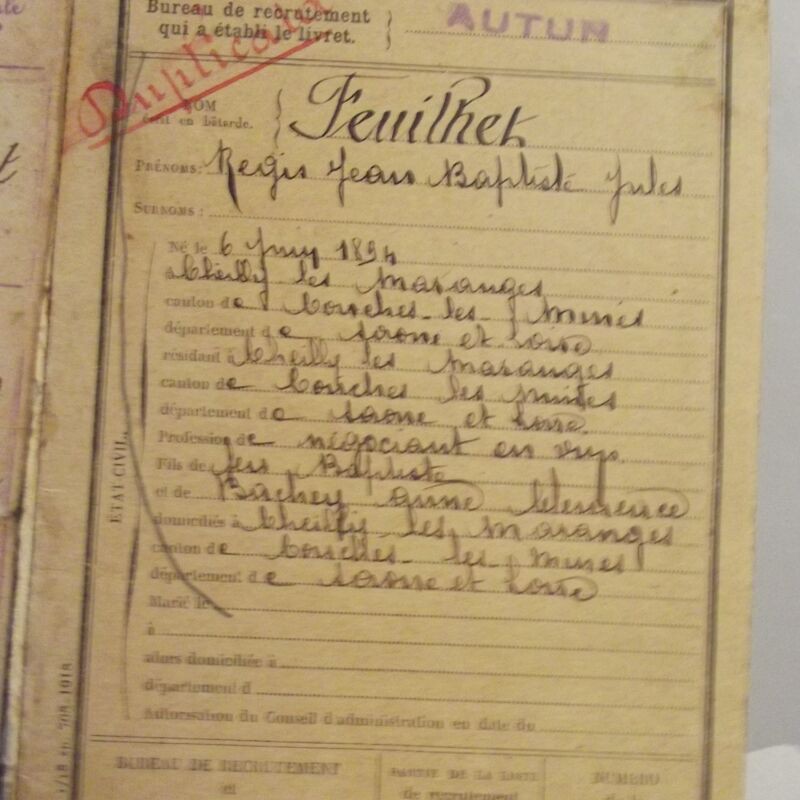 Bureau de recrutement
qui a établi le livret.
AUTUN
Duplicata
NOM
écrit en bâtarde.
Feuilhet
PRÉNOMS: Regis Jean Baptiste Jules
SURNOMS:
Né le 6 Juin 1894
à Cheilly les Maranges
canton de Couches-les-Mines
département de Saone et Loire
résidant à Cheilly les Maranges
canton de Couches les Mines
département de Saone et Loire
Profession de négociant en vins
Fils de Baptiste
et de Bachey anne Clemence
domiciliés à Cheilly les Maranges
canton de Couches-les-Mines
département de Saone et Loire
Marié le
à
alors domiciliée à
département d
Autorisation du Conseil d'administration en date du
ÉTAT CIVIL.
BUREAU DE RECRUTEMENT
et
PARTIE DE LA LISTE
de recrutement
NUMÉRO